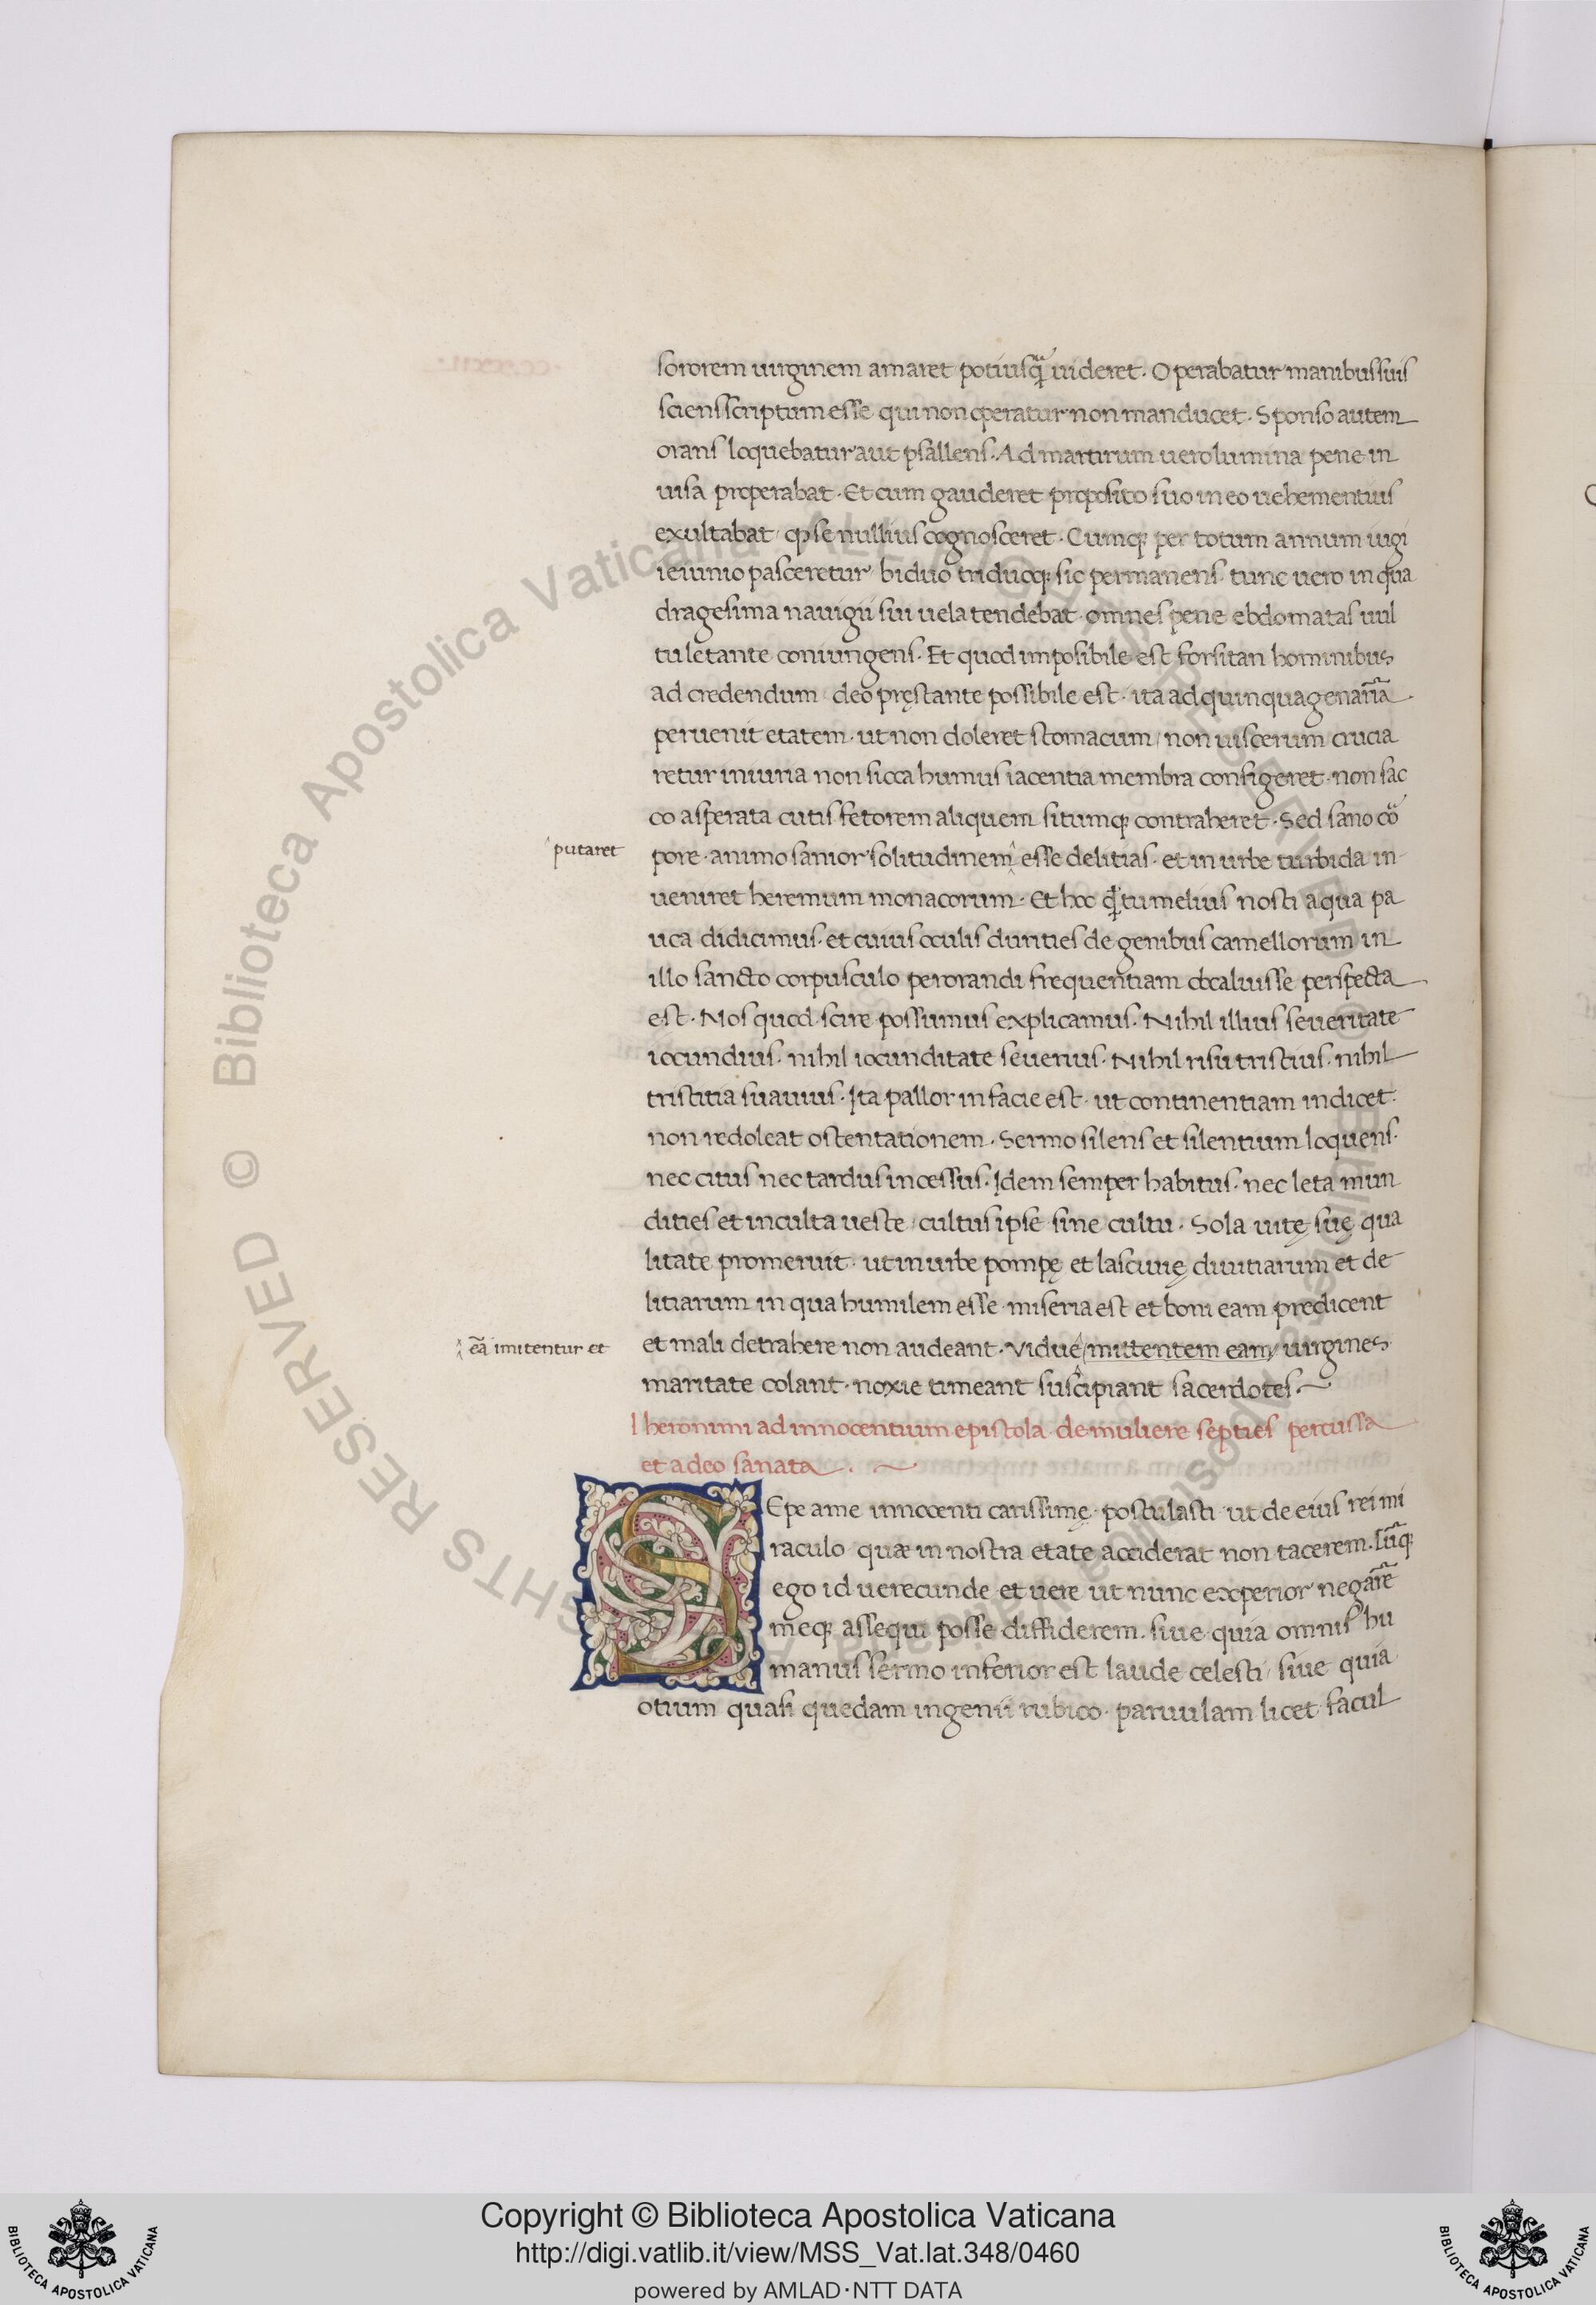 sororem uirginem amaret potiusq̃ uideret. Operabatur manibus suis
sciens scriptum esse qui non operatur non manducet. Sponso autem
orans loquebatur aut psallens. Ad martirum uero lumina pene in
uisa properabat. Et cum gauderet proposito suo in eo uehementius
exultabat qƥ se nullius cognosceret. Cumq; per totum annum iugi
ieiunio pasceretur biduo triduoq; sic permanens tunc uero in qua
dragesima nauigii sui uela tendebat omnes pene ebdomatas uul
tu letante coniungens. Et quod imposibile est forsitan hominibus
ad credendum deo pręstante possibile est. ita ad quinquagenariã
peruenit etatem. ut non doleret stomacum, non uiscerum crucia
retur iniuria non sicca humus iacentia membra configeret. non sac
co asperata cutis fetorem aliquem situmq; contraheret. Sed sano cor̃
^putaret
pore. animo sanior solitudinem^ esse delitias. et in urbe turbida in
ueniret heremum monacorum. Et hoc q̃ tu melius nosti a qua pa
uca didicimus. et cuius oculis durities de genibus camellorum in
illo sancto corpusculo perorandi frequentiam obcaluisse perspecta
est. Nos quod scire possumus explicamus. Nihil illius seueritate
iocundius. nihil iocunditate seuerius. Nihil risu tristius. nihil
tristitia suauius. Ita pallor in facie est. ut continentiam indicet.
non redoleat ostentationem. Sermo silens et silentium loquens.
nec citus nec tardus incessus. Idem semper habitus. nec leta mun
dities et inculta ueste, cultus ipse sine cultu. Sola uitę suę qua
litate promeruit. ut in urbe pompę et lasciuię diuitiarum et de
litiarum in qua humilem esse miseria est et boni eam predicent
^ eã imitentur et
et mali detrahere non audeant. Vidue^ mittentem eam, uirgines
maritate colant. noxie timeant suscipiant sacerdotes.
Iheronimi ad innocentium epistola de muliere septies percussa
et a deo sanata.
SEpe a me innocenti carissimę postulasti ut de eius rei mi
raculo quæ in nostra etate acciderat non tacerem. Cũq;
ego id uerecunde et uere ut nunc experior negarẽ
meq; assequi posse diffiderem. siue quia omnis hu
manus sermo inferior est laude celesti, siue quia
otium quasi quedam ingenii rubico. paruulam licet facul
Copyright © Biblioteca Apostolica Vaticana
http://digi.vatlib.it/view/MSS_Vat.lat.348/0460
powered by AMLAD·NTT DATA
BIBLIOTECA APOSTOLICA VATICANA
BIBLIOTECA APOSTOLICA VATICANA